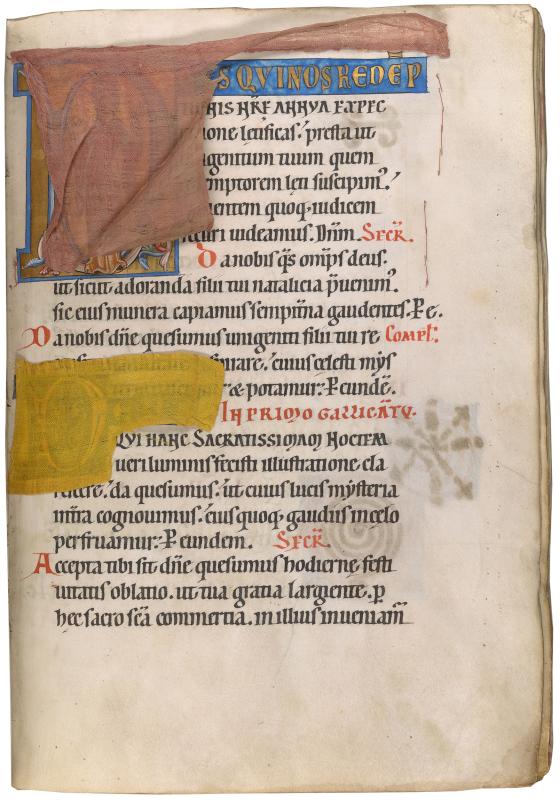 S QVI NOS REDEP
TIONIS NRE ANNVA EXPEC
tione letificas. presta ut
igenitum tuum quem
emptorem leti suscipim.
ientem quoq. iudicem
securi uideamus. Dnm. Secr.
Da nobis qs omps deus.
ut sicut adoranda filii tui natalicia preuenim.
sic eius munera capiamus sempitna gaudentes. P e.
Da nobis dne quesumus unigeniti filii tui re Compl.
spirare. cuius celesti mys
potamur. P eunde.
IN PRIMO GALLICANTV.
QVI HANC SACRATISSIMAM NOCTEM
ueri luminis fecisti illustratione cla
rescere. da quesumus. ut cuius lucis mysteria
in tra cognouimus. eius quoq. gaudiis in celo
perfruamur. P eundem. Secr.
Accepta tibi sit dne quesumus hodierne festi
uitatis oblatio. ut tua gratia largiente. p
hec sacro sca commertia. in illius inueniam